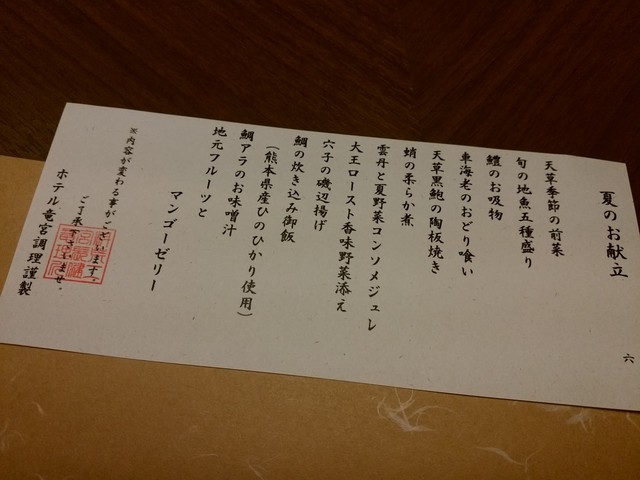 夏のお献立
六
天草季節の前菜
旬の地魚五種盛り
鱧のお吸物
車海老のおどり喰い
天草黒鮑の陶板焼き
蛸の柔らか煮
雲丹と夏野菜コンソメジュレ
大王ロースト香味野菜添え
穴子の磯辺揚げ
鯛の炊き込み御飯
(熊本県産ひのひかり使用)
鯛アラのお味噌汁
地元フルーツと
マンゴーゼリー
※内容が変わる事がございます。
ご了承下さいませ。
ホテル竜宮調理謹製